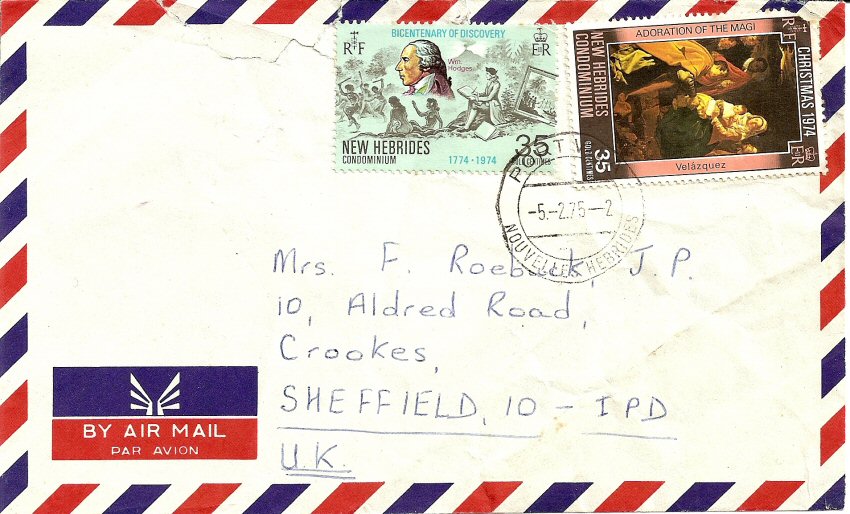 BICENTENARY OF DISCOVERY
R F
E R
Wm. Hodges
NEW HEBRIDES
CONDOMINIUM
1774 - 1974
35
GOLD CENTIMES
ADORATION OF THE MAGI
R F
CHRISTMAS 1974
E R
NEW HEBRIDES
CONDOMINIUM
35
GOLD CENTIMES
Velázquez
-5.-2.75--2
NOUVELLES HEBRIDES
Mrs. F. Roebuck, J.P.
10, Aldred Road,
Crookes,
SHEFFIELD, 10 - IPD
U.K.
BY AIR MAIL
PAR AVION